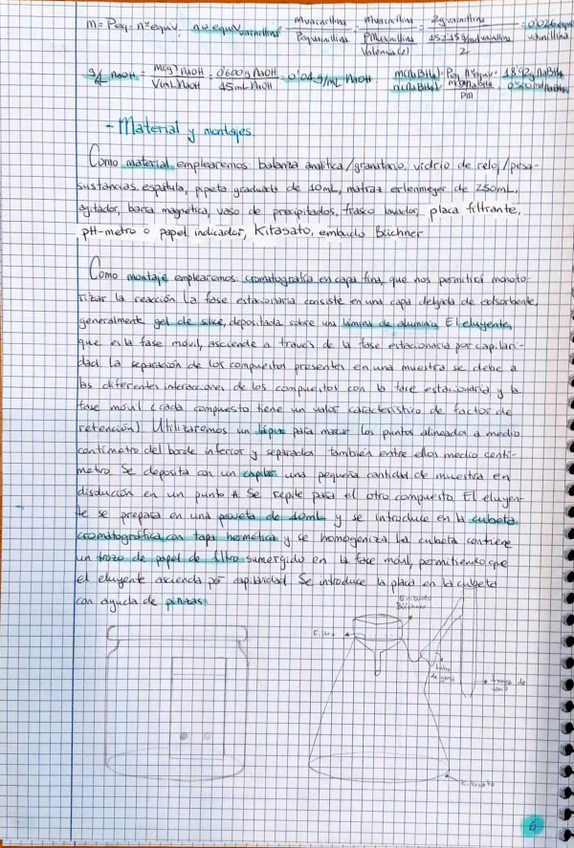 m = Peq · nº equiv. nº equiv vainillina = m vainillina / Peq vainillina = m vainillina / Pm vainillina / Valencia (2) = 2g vainillina / 152'15 g/mol vainillina / 2 = 0'026 equiv vainillina
g/L NaOH = m(g) NaOH / V(mL) NaOH = 0'600g NaOH / 15mL NaOH = 0'04 g/mL NaOH
- Material y montajes.
Como material emplearemos balanza analítica/granatario, vidrio de reloj/pesa-
sustancias, espátula, pipeta graduada de 10mL, matraz erlenmeyer de 250mL,
agitador, barra magnética, vaso de precipitados, frasco lavador, placa filtrante,
pH-metro o papel indicador, Kitasato, embudo Büchner
Como montaje emplearemos cromatografía en capa fina, que nos permitirá monoto-
rizar la reacción La fase estacionaria consiste en una capa delgada de adsorbente,
generalmente gel de sílice, depositada sobre una lámina de aluminio El eluyente,
que es la fase móvil, asciende a través de la fase estacionaria por capilari-
dad La separación de los compuestos presentes en una muestra se debe a
las diferentes interacciones de los compuestos con la fase estacionaria y la
fase móvil (cada compuesto tiene un valor característico de factor de
retención) Utilizaremos un lápiz para marcar los puntos alineados a medio
centímetro del borde inferior y separados también entre ellos medio centí-
metro Se deposita con un capilar una pequeña cantidad de muestra en
disolución en un punto A Se repite para el otro compuesto El eluyen-
te se prepara en una probeta de 10mL y se introduce en la cubeta
cromatográfica con tapa hermética y se homogeniza La cubeta contiene
un trozo de papel de filtro sumergido en la fase móvil, permitiendo que
el eluyente ascienda por capilaridad Se introduce la placa en la cubeta
con ayuda de pinzas
Embudo
Büchner
Filtro
Kitasato
6